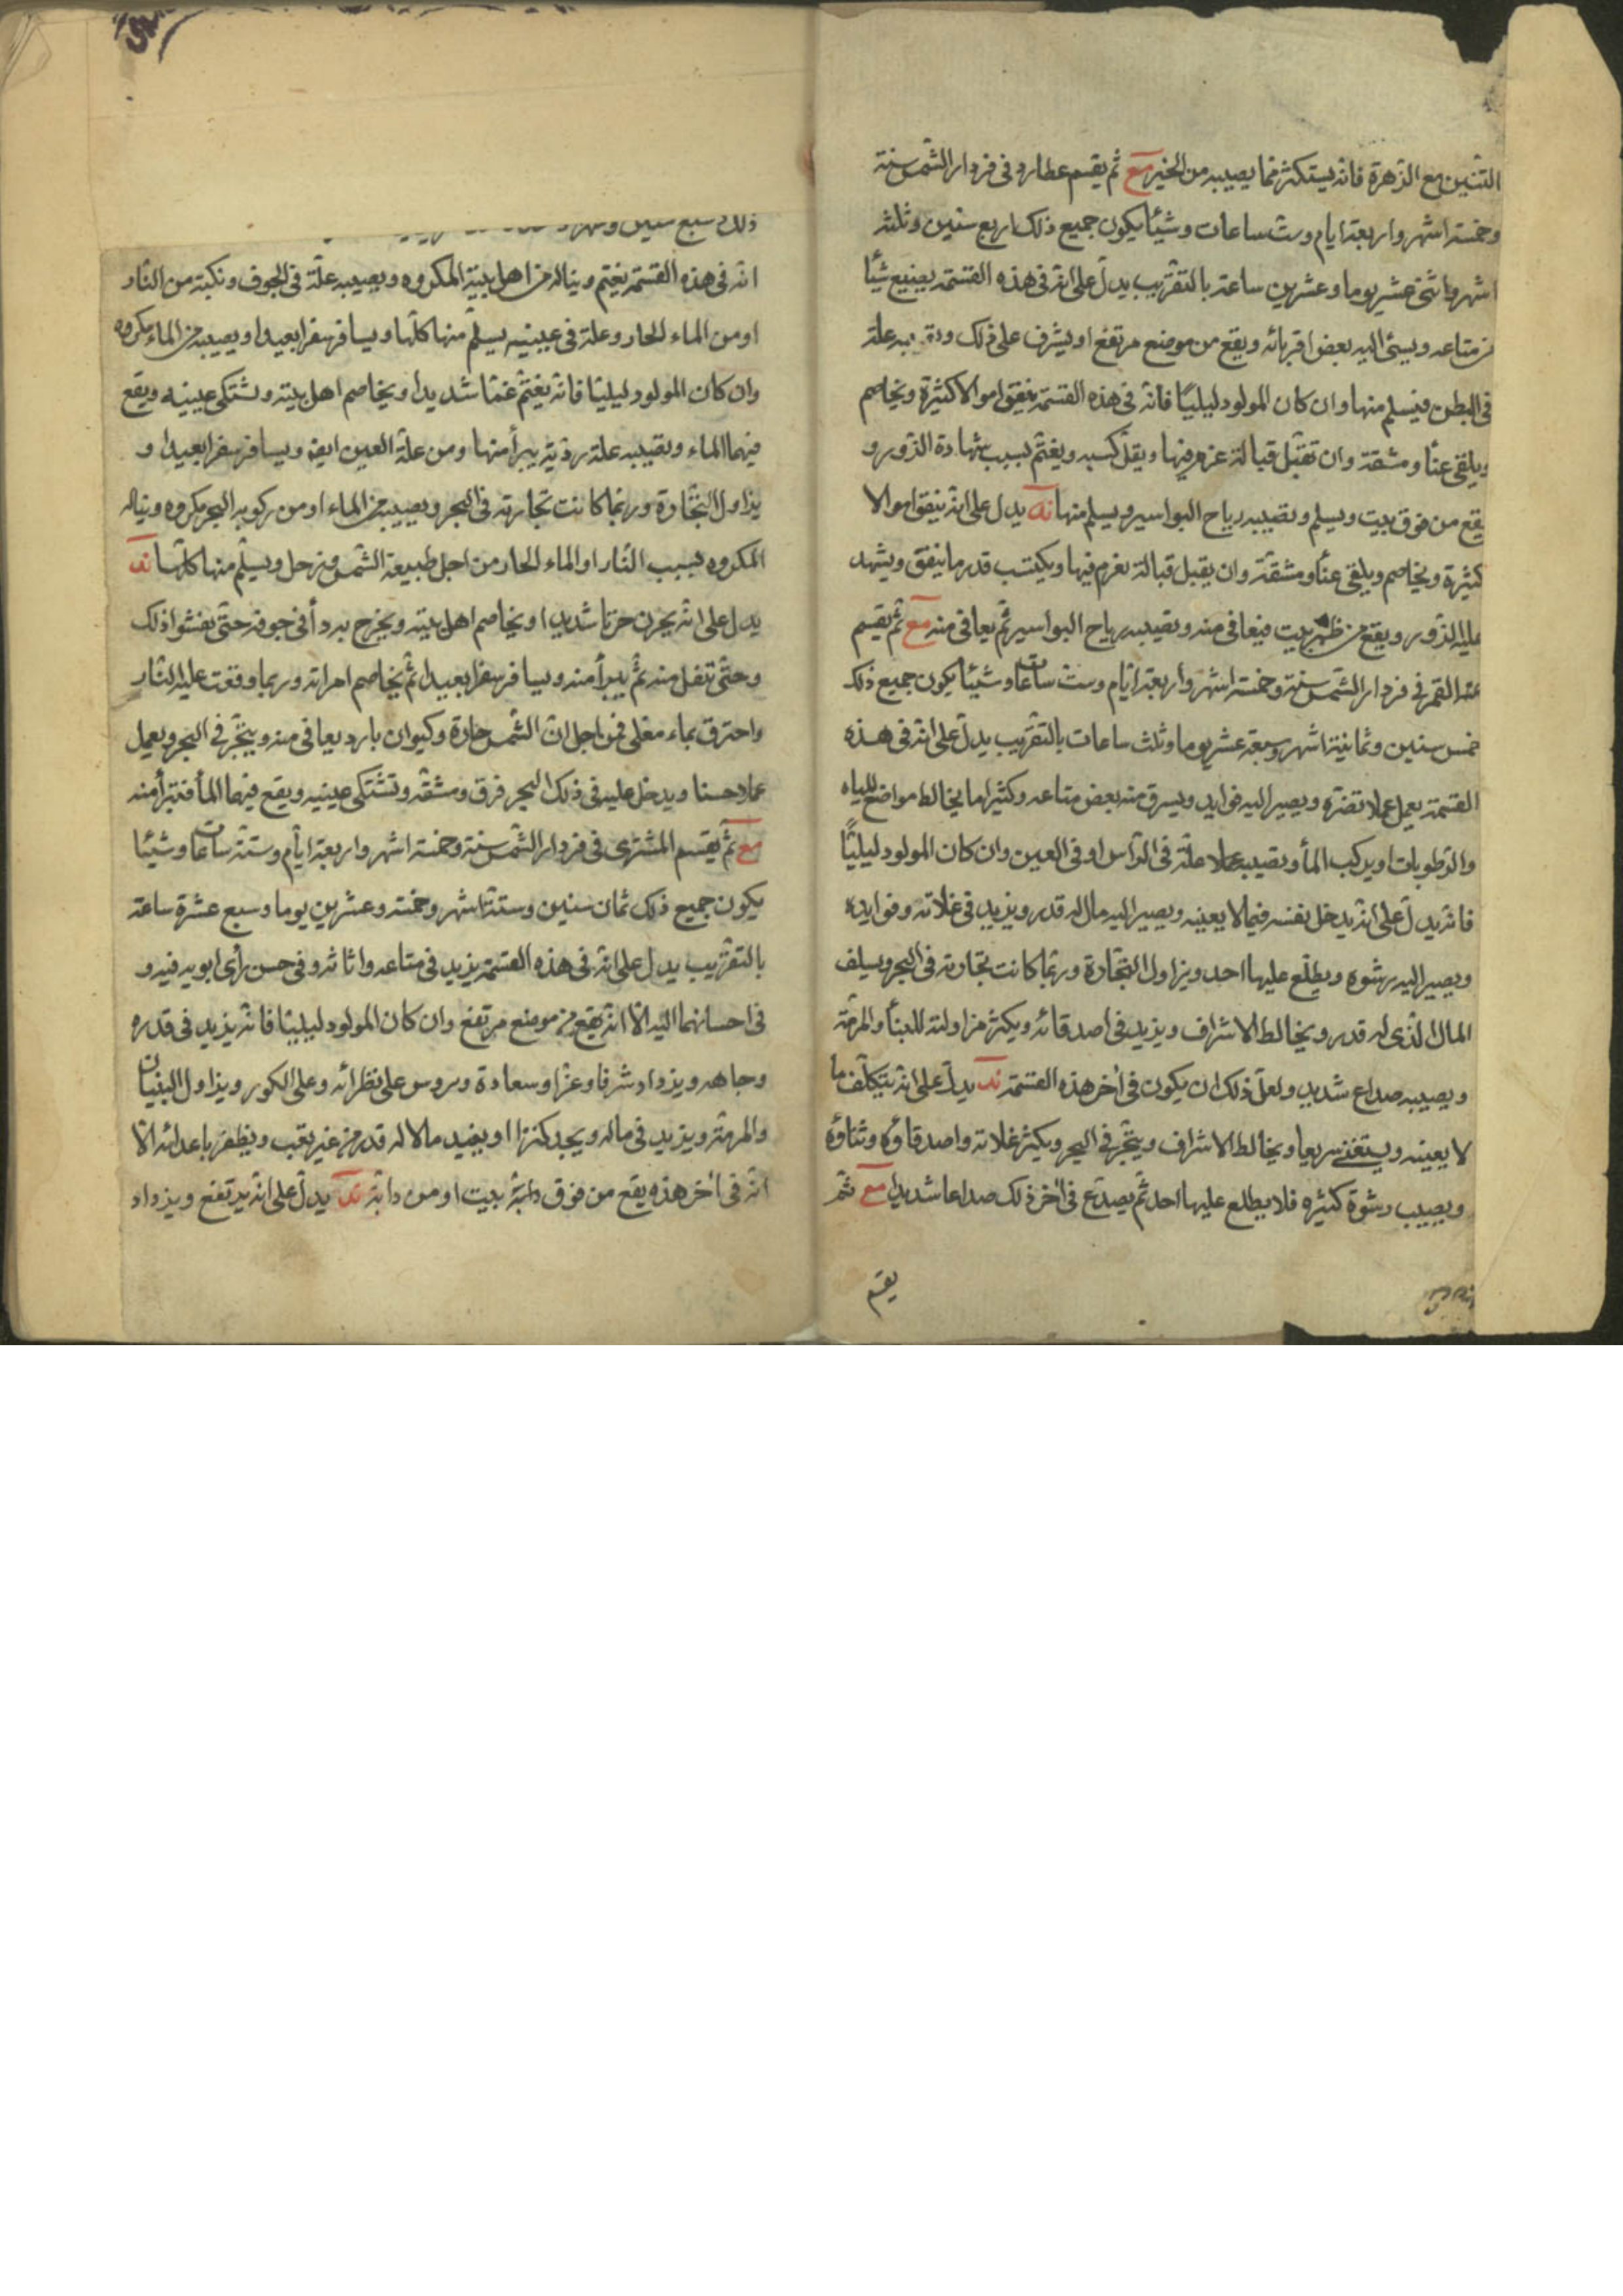 التنين مع الزهرة فانه يستكثر مما يصيبه من الخير مع ثم يقسم عطارد فى فردار الشمس سنة
وخمسة اشهر واربعة ايام وست ساعات وشيئا يكون جميع ذلك اربع سنين وثلثة
اشهر واثنى عشر يوما وعشرين ساعة بالتقريب يدل على انه فى هذه القسمة يضيع شيئا
من متاعه ويسئ اليه بعض اقربائه ويقع من موضع مرتفع او يشرف على ذلك علة
فى البطن فيسلم منها وان كان المولود ليليا فانه فى هذه القسمة ينفق اموالا كثيرة ويخاصم
ويلقى عنأ ومشقة وان تقبل قبالة غرم فيها ويقل كسبه ويغتم بسبب شهادة الزور و
يقع من فوق بيت ويسلم وتصيبه رياح البواسير ويسلم منها ند يدل على انه ينفق اموالا
كثيرة ويخاصم ويلقى عنأ ومشقة وان يقبل قبالة غرم فيها ويكتسب قدر ما ينفق ويشهد
عليه الزور ويقع من ظهر بيت فيعافى منه وتصيبه رياح البواسير ثم يعافى منه مع ثم يقسم
القمر فى فردار الشمس سنة وخمسة اشهر واربعة ايام وست ساعات وشيئا يكون جميع ذلك
خمس سنين وثمانية اشهر وسبعة عشر يوما وثلث ساعات بالتقريب يدل على انه فى هذه
القسمة يعمل عملا تضره ويصير اليه فوايد ويسرق منه بعض متاعه وكثيرا ما يخالط مواضع المياه
والرطوبات او يركب المأ وتصيبه علة فى الرأس او فى العين وان كان المولود ليليا
فانه يدل على انه يدخل نفسه فيما لا يعينه ويصير اليه مال له قدر ويزيد فى غلاته وفوايده
ويصير اليه رشوه ويطلع عليها احد ويزاول التجارة وربما كانت تجارته فى البحر ويسلف
المال الذى له قدر ويخالط الاشراف ويزيد فى اصدقائه ويكثر مزاولته للبنأ والمرمة
ويصيبه صداع شديد ولعل ذلك ان يكون فى اخر هذه القسمة ند يدل على انه يتكلف ما
لا يعينه ويستغنى سريعا ويخالط الاشراف ويتجر فى البحر ويكثر غلاته واصدقاؤه وثناؤه
ويصيب رشوة كثيره فلا يطلع عليها احد ثم يصدع فى اخر ذلك صداعا شديدا مع ثم
يقسم
ذلك سبع سنين
انه فى هذه القسمة يغتم ويناله من اهل بيته المكروه ويصيبه علة فى الجوف ونكبة من النار
او من الماء الحار وعلة فى عينيه يسلم منها كلها ويسافر سفرا بعيدا ويصيبه من الماء مكروه
وان كان المولود ليليا فانه يغتم غما شديدا ويخاصم اهل بيته وتشتكى عينيه ويقع
فيهما الماء وتصيبه علة رديه يبرأ منها ومن علة العين ايضا ويسافر سفرا بعيدا و
يزاول التجارة وربما كانت تجارته فى البحر ويصيبه من الماء او من ركوبه البحر مكروه ويناله
المكروه بسبب النار او الماء الحار من اجل طبيعة الشمس وزحل ويسلم منها كلها ند
يدل على انه يحزن حزنا شديدا ويخاصم اهل بيته ويخرج به دأ فى جوفه حتى يفشوا ذلك
وحتى تنفل منه ثم يبرأ منه ويسافر سفرا بعيدا ثم يخاصم امراته وربما وقعت عليه النار
واحترق بماء مغلى فمن اجل ان الشمس حارة وكيوان بارد يعافى منه ويتجر فى البحر ويعمل
عملا حسنا ويدخل عليه فى ذلك البحر فرق ومشقه وتشتكى عينيه ويقع فيهما المأ فتبرأ منه
مع ثم يقسم المشترى فى فردار الشمس سنة وخمسة اشهر واربعة ايام وستة ساعات وشيئا
يكون جميع ذلك ثمان سنين وستة اشهر وخمسة وعشرين يوما وسبع عشرة ساعة
بالتقريب يدل على انه فى هذه القسمة يزيد فى متاعه واثاثه وفى حسن رأى ابويه فيه و
فى احسانهما اليه الا انه يقع من موضع مرتفع وان كان المولود ليليا فانه يزيد فى قدره
وجاهه ويزداد شرفا وعزا وسعادة ويروس على نظرائه وعلى الكور ويزاول البنيان
والمرمة ويزيد فى ماله ويجد كنزا او يفيد مالا له قدر من غير تعب ويظفر باعدائه الا
انه فى اخر هذه يقع من فوق دابة بيت او من دابة ند يدل على انه يرتفع ويزداد